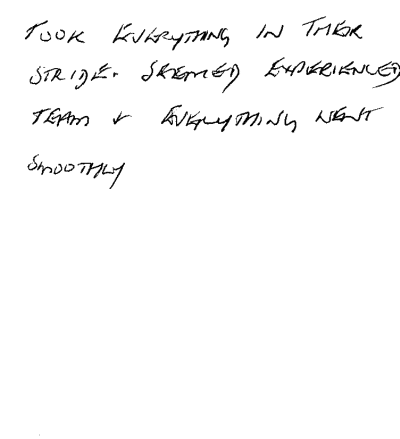 TOOK EVERYTHING IN THEIR
STRIDE. SEEMED EXPERIENCED
TEAM & EVERYTHING WENT
SMOOTHLY